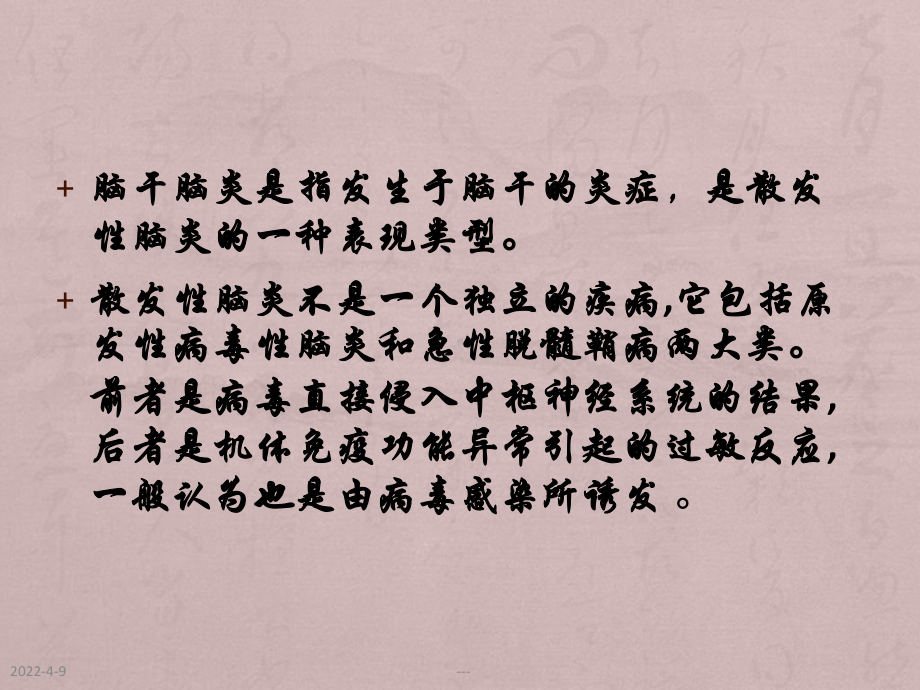 + 脑干脑炎是指发生于脑干的炎症，是散发
性脑炎的一种表现类型。
+ 散发性脑炎不是一个独立的疾病,它包括原
发性病毒性脑炎和急性脱髓鞘病两大类。
前者是病毒直接侵入中枢神经系统的结果,
后者是机体免疫功能异常引起的过敏反应,
一般认为也是由病毒感染所诱发 。
2022-4-9
---